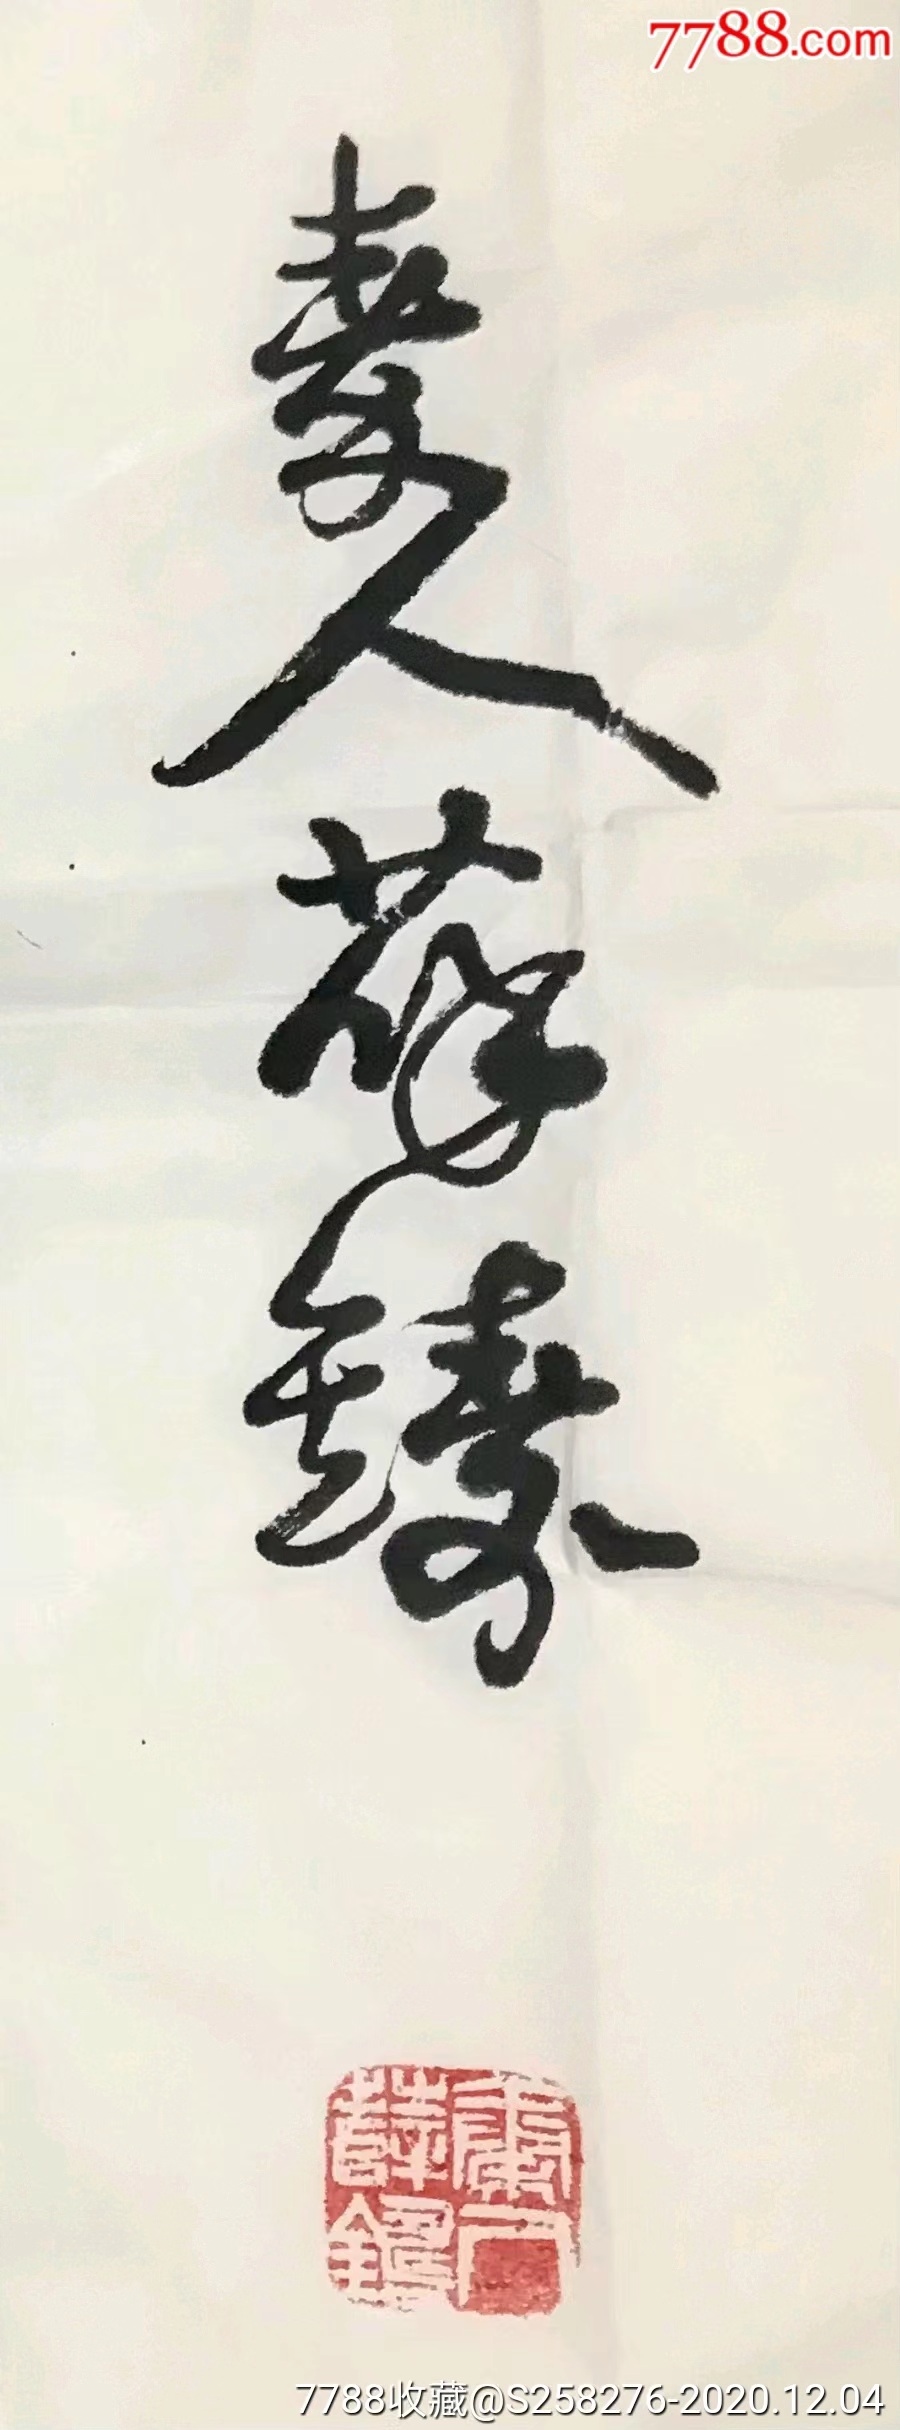 7788.com
秦人薛铸
秦人
薛鑄
7788收藏@S258276-2020.12.04